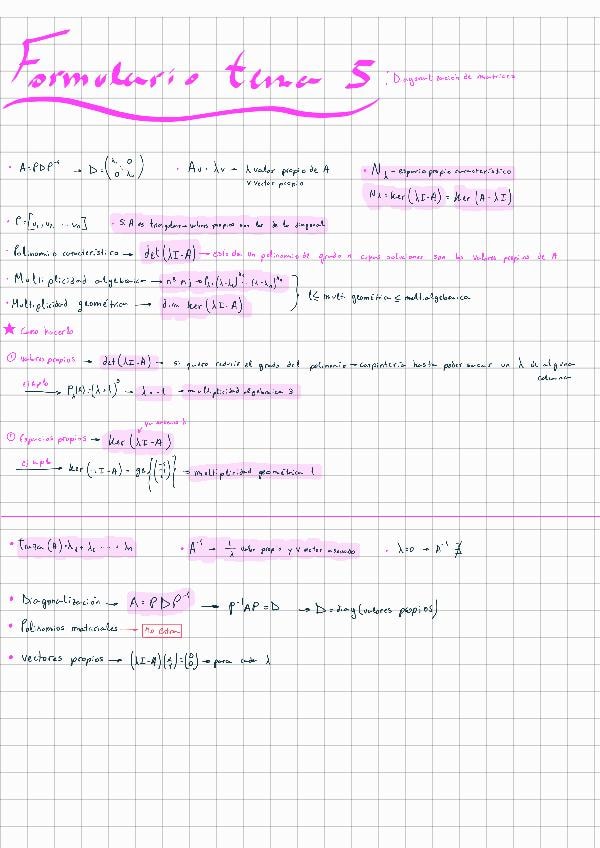 Formulario tema 5 : Diagonalización de matrices
• A=PDP⁻¹ → D=(λ₁ 0 0 λₙ) • Av = λv → λ valor propio de A
v vector propio
• N_λ → espacio propio característico
N_λ = ker(λI-A) = ker(A-λI)
• P=[v₁, v₂, ... vₙ] • Si A es triangular → valores propios son los de la diagonal
• Polinomio característico → det(λI-A) → Esto da un polinomio de grado n cuyas soluciones son los valores propios de A
• Multiplicidad algebraica → nº nj →
• Multiplicidad geométrica → dim ker(λI-A)
1 ≤ multi. geométrica ≤ mult. algebraica
★ Como hacerlo
① Valores propios → det(λI-A) → si quiero reducir el grado del polinomio → carpintería hasta poder sacar un λ de alguna
columna
→ multiplicidad algebraica 3
① Espacios propios → ker(λI-A)
= multiplicidad geométrica 1
• Traza(A) = λ₁ + λ₂ + ... + λₙ • A⁻¹ → 1/λ valor propio y v vector asociado • λ=0 → A⁻¹ ∄
• Diagonalización → A = PDP⁻¹ → P⁻¹AP = D → D = diag(valores propios)
• Polinomios matriciales → No entra
• Vectores propios → (λI-A)(x y) = (0 0) → para cada λ